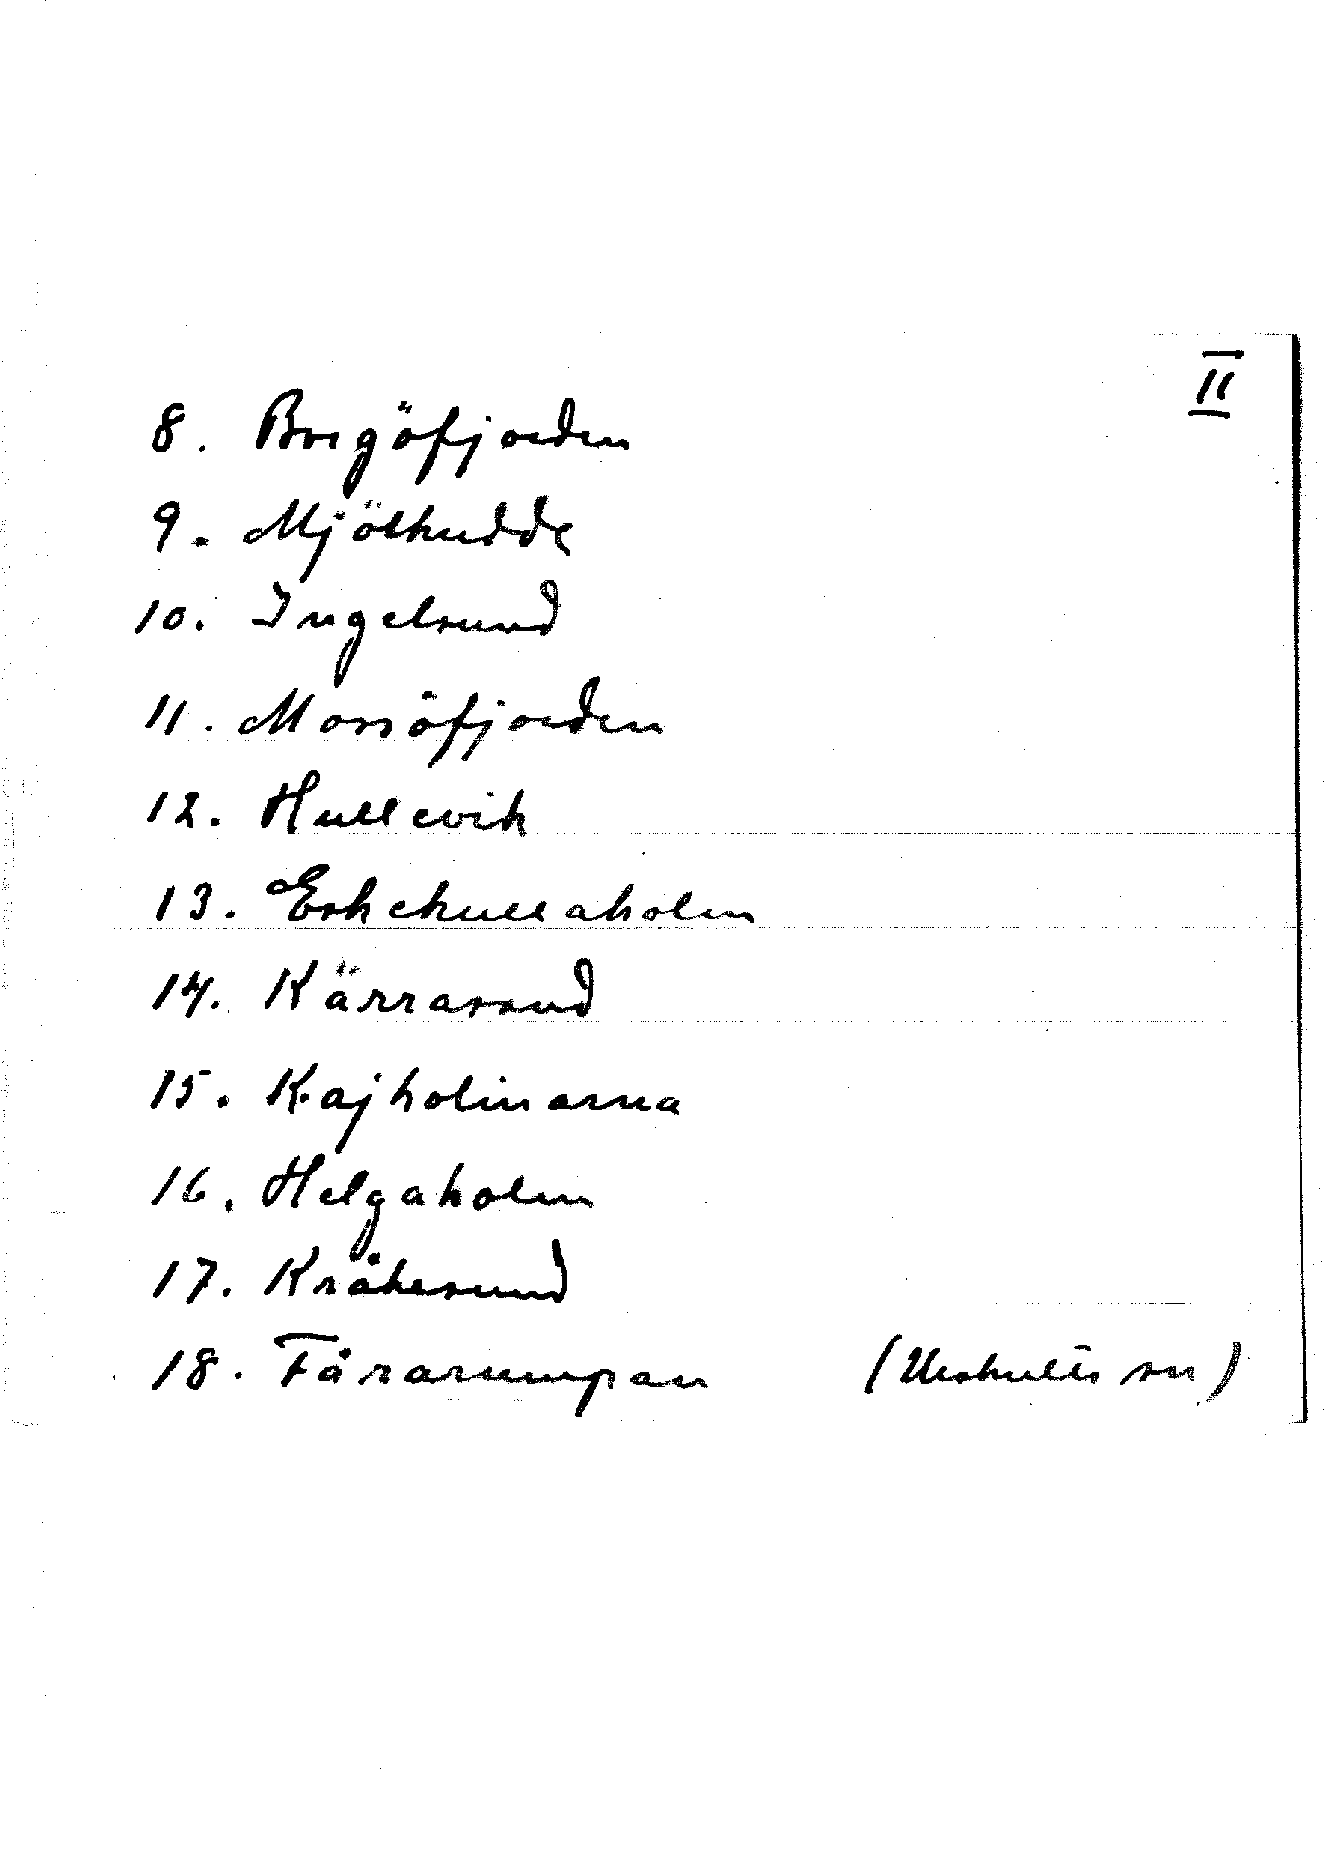 II
8. Borgöfjorden
9. Mjölkudde
10. Ingelsund
11. Morsöfjorden
12. Hullevik
13. Eskekullaholm
14. Kärrasund
15. Kajholmarna
16. Helgaholm
17. Kråkesund
18. Fårarumpan (Urshults sn)